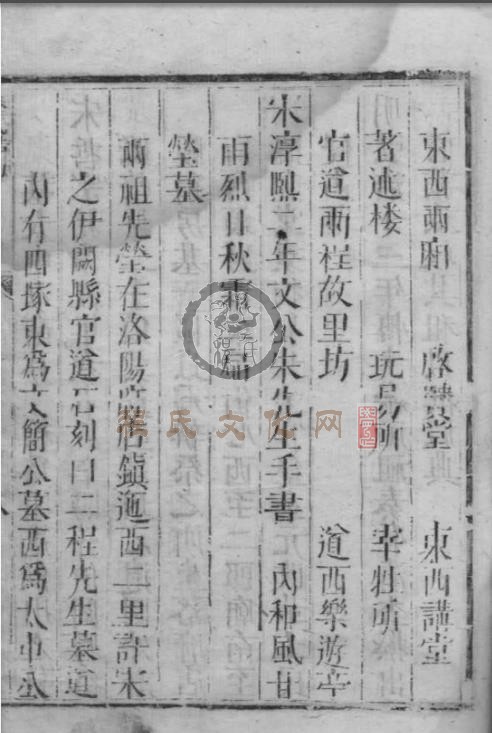 東西兩廂 啟賢堂 東西講堂
著述楼 玩易所 宰牲所
官道兩程故里坊 道西樂遊亭
宋淳熙二年文公朱先生手書 內和風甘
雨烈日秋霜二扁
塋墓
兩祖先塋在洛陽 鎮迤西二里許宋
之伊闕縣官道石刻曰二程先生墓道
內有四塚東爲文簡公墓西爲太中公
程氏文化网